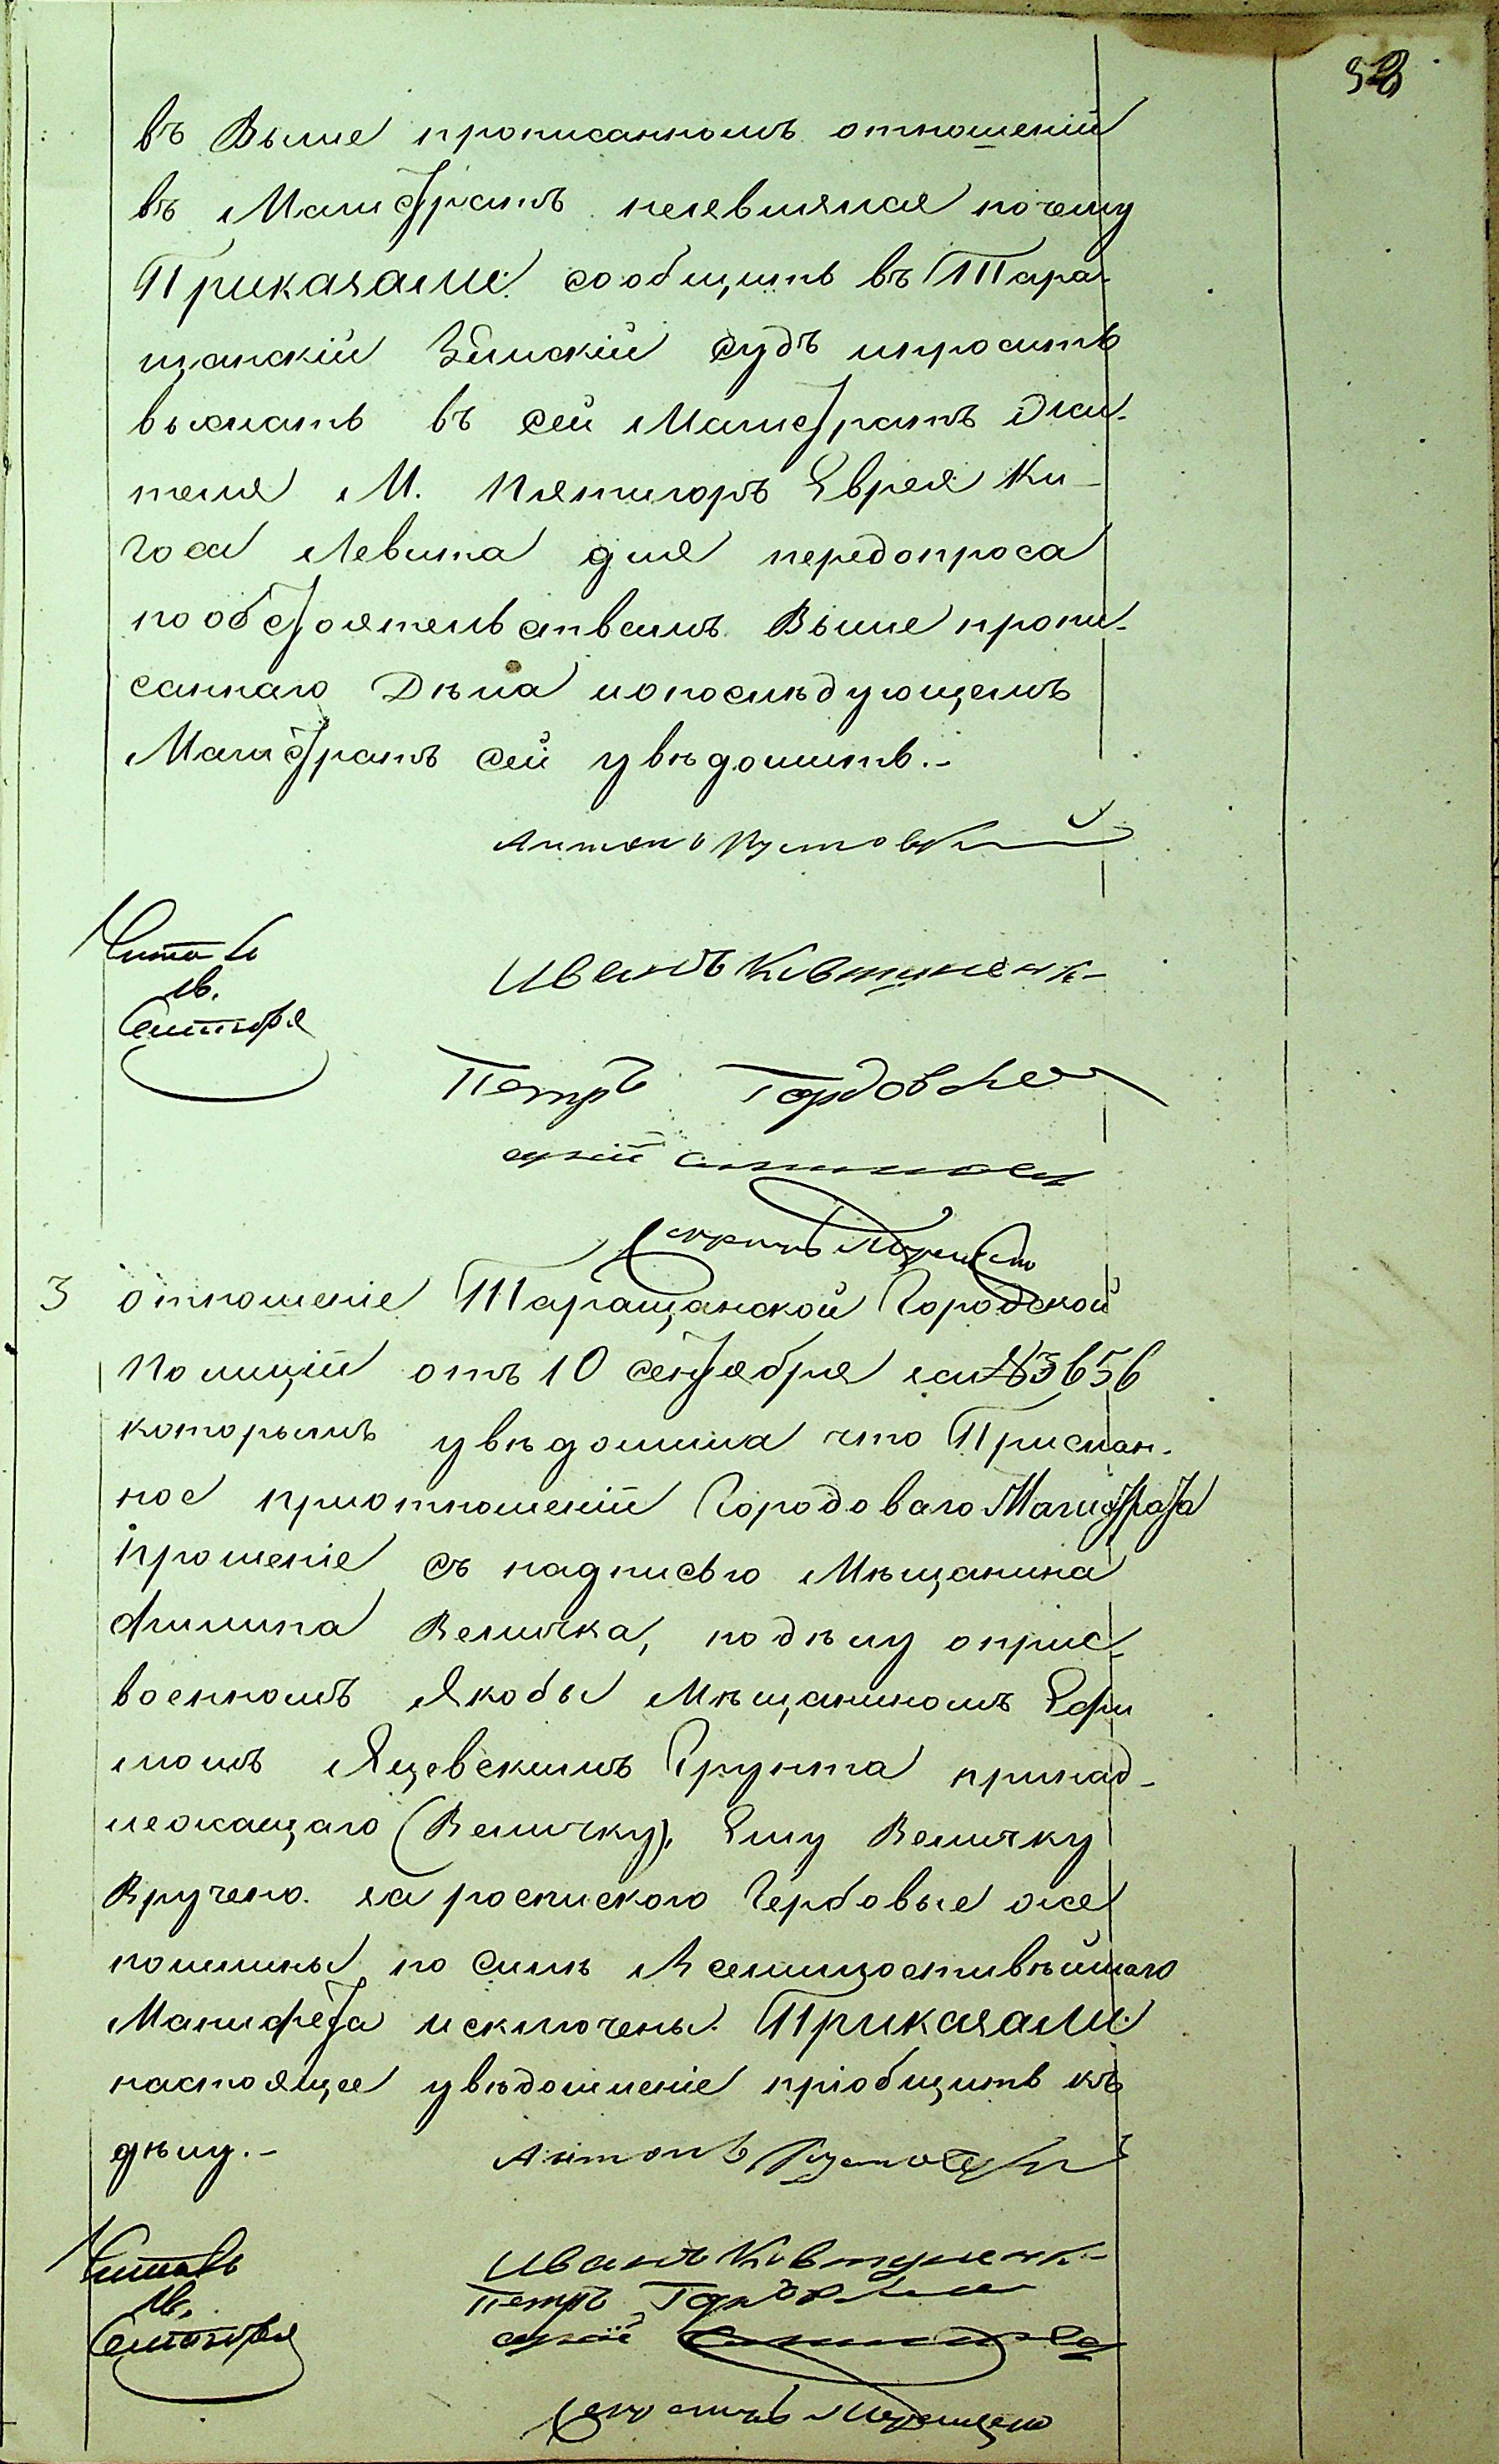 въ Выше прописанномъ отношеній
въ Магистратъ неявлялся почему
Приказали: сообщить въ Тара-
щанскій Земскій судъ ипросить
выслать въ сей Магистратъ Жи-
теля М. Пятигоръ Еврея Ки-
Левита для передопроса
пообстоятельствамъ Выше пропи-
саннаго Дѣла ипопослѣдующемъ
Магистратъ сей увѣдомить.-
Антонъ
Читалъ
Сентября
Иванъ Ковтуненко
Петръ
3 отношеніе Таращанской Городской
Полиціи отъ 10 сентября за №3656
которымъ увѣдомила что Прислан-
ное приотношеніи Городоваго Магистрата
прошеніе съ надписью Мѣщанина
Филипа Величка, подѣлу оприс-
военномъ Якобы Мѣщаниномъ Ефи
момъ Яцевскимъ Грунта принад-
лежащаго (Величку), Ему Величку
Вручено за роспискою Гербовые же
пошлины по силѣ Всемилостивѣйшаго
Манифеста исключены. Приказали:
настоящее увѣдомленіе пріобщить къ
дѣлу.-
Антонъ
Читалъ
Сентября
Иванъ Ковтуненко
Петръ